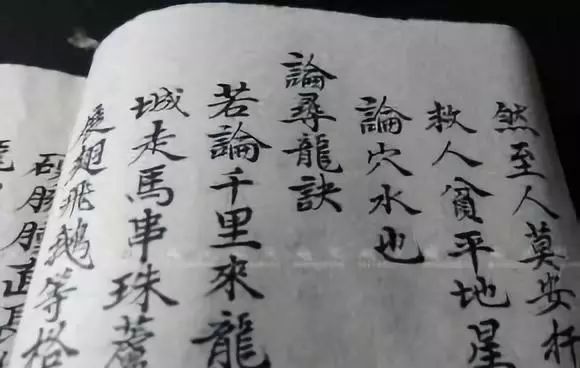 然至人莫安杆
救人貧平地星
論穴水也
論尋龍訣
若論千里來龍
城走馬串珠蘆
展翅飛鵝等格